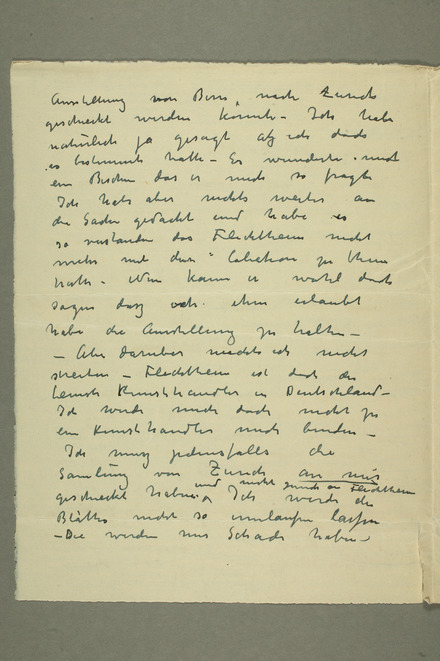 Ausstellung von Bern, nach Zürich
geschickt werden konnte – Ich habe
natürlich ja gesagt als ich dads
es bestimmt hatte – Er wunderte mich
ein Bischen das er mich so fragte
Ich habe aber nichts weiter an
die Sache gedacht und habe es
so verstanden das Flechtheim nicht
mehr mit der " Colection zu thun
hatte – Nun kann er wohl doch
sagen dasz ich ihm erlaubt
habe die Ausstellung zu halten –
– Aber darüber möchte ich nicht
streiten – Flechtheim ist doch der
beinste Kunsthändler in Deutschland –
Ich werde mich doch nicht zu
ein Kunsthändler mich binden –
Ich musz jedensfalls die
Samlung von Zürich an mir
und nicht zurück an Flechtheim
geschickt haben – Ich werde die
Blätter nicht so umlaufen laszen
– Die werden nur Schade haben –